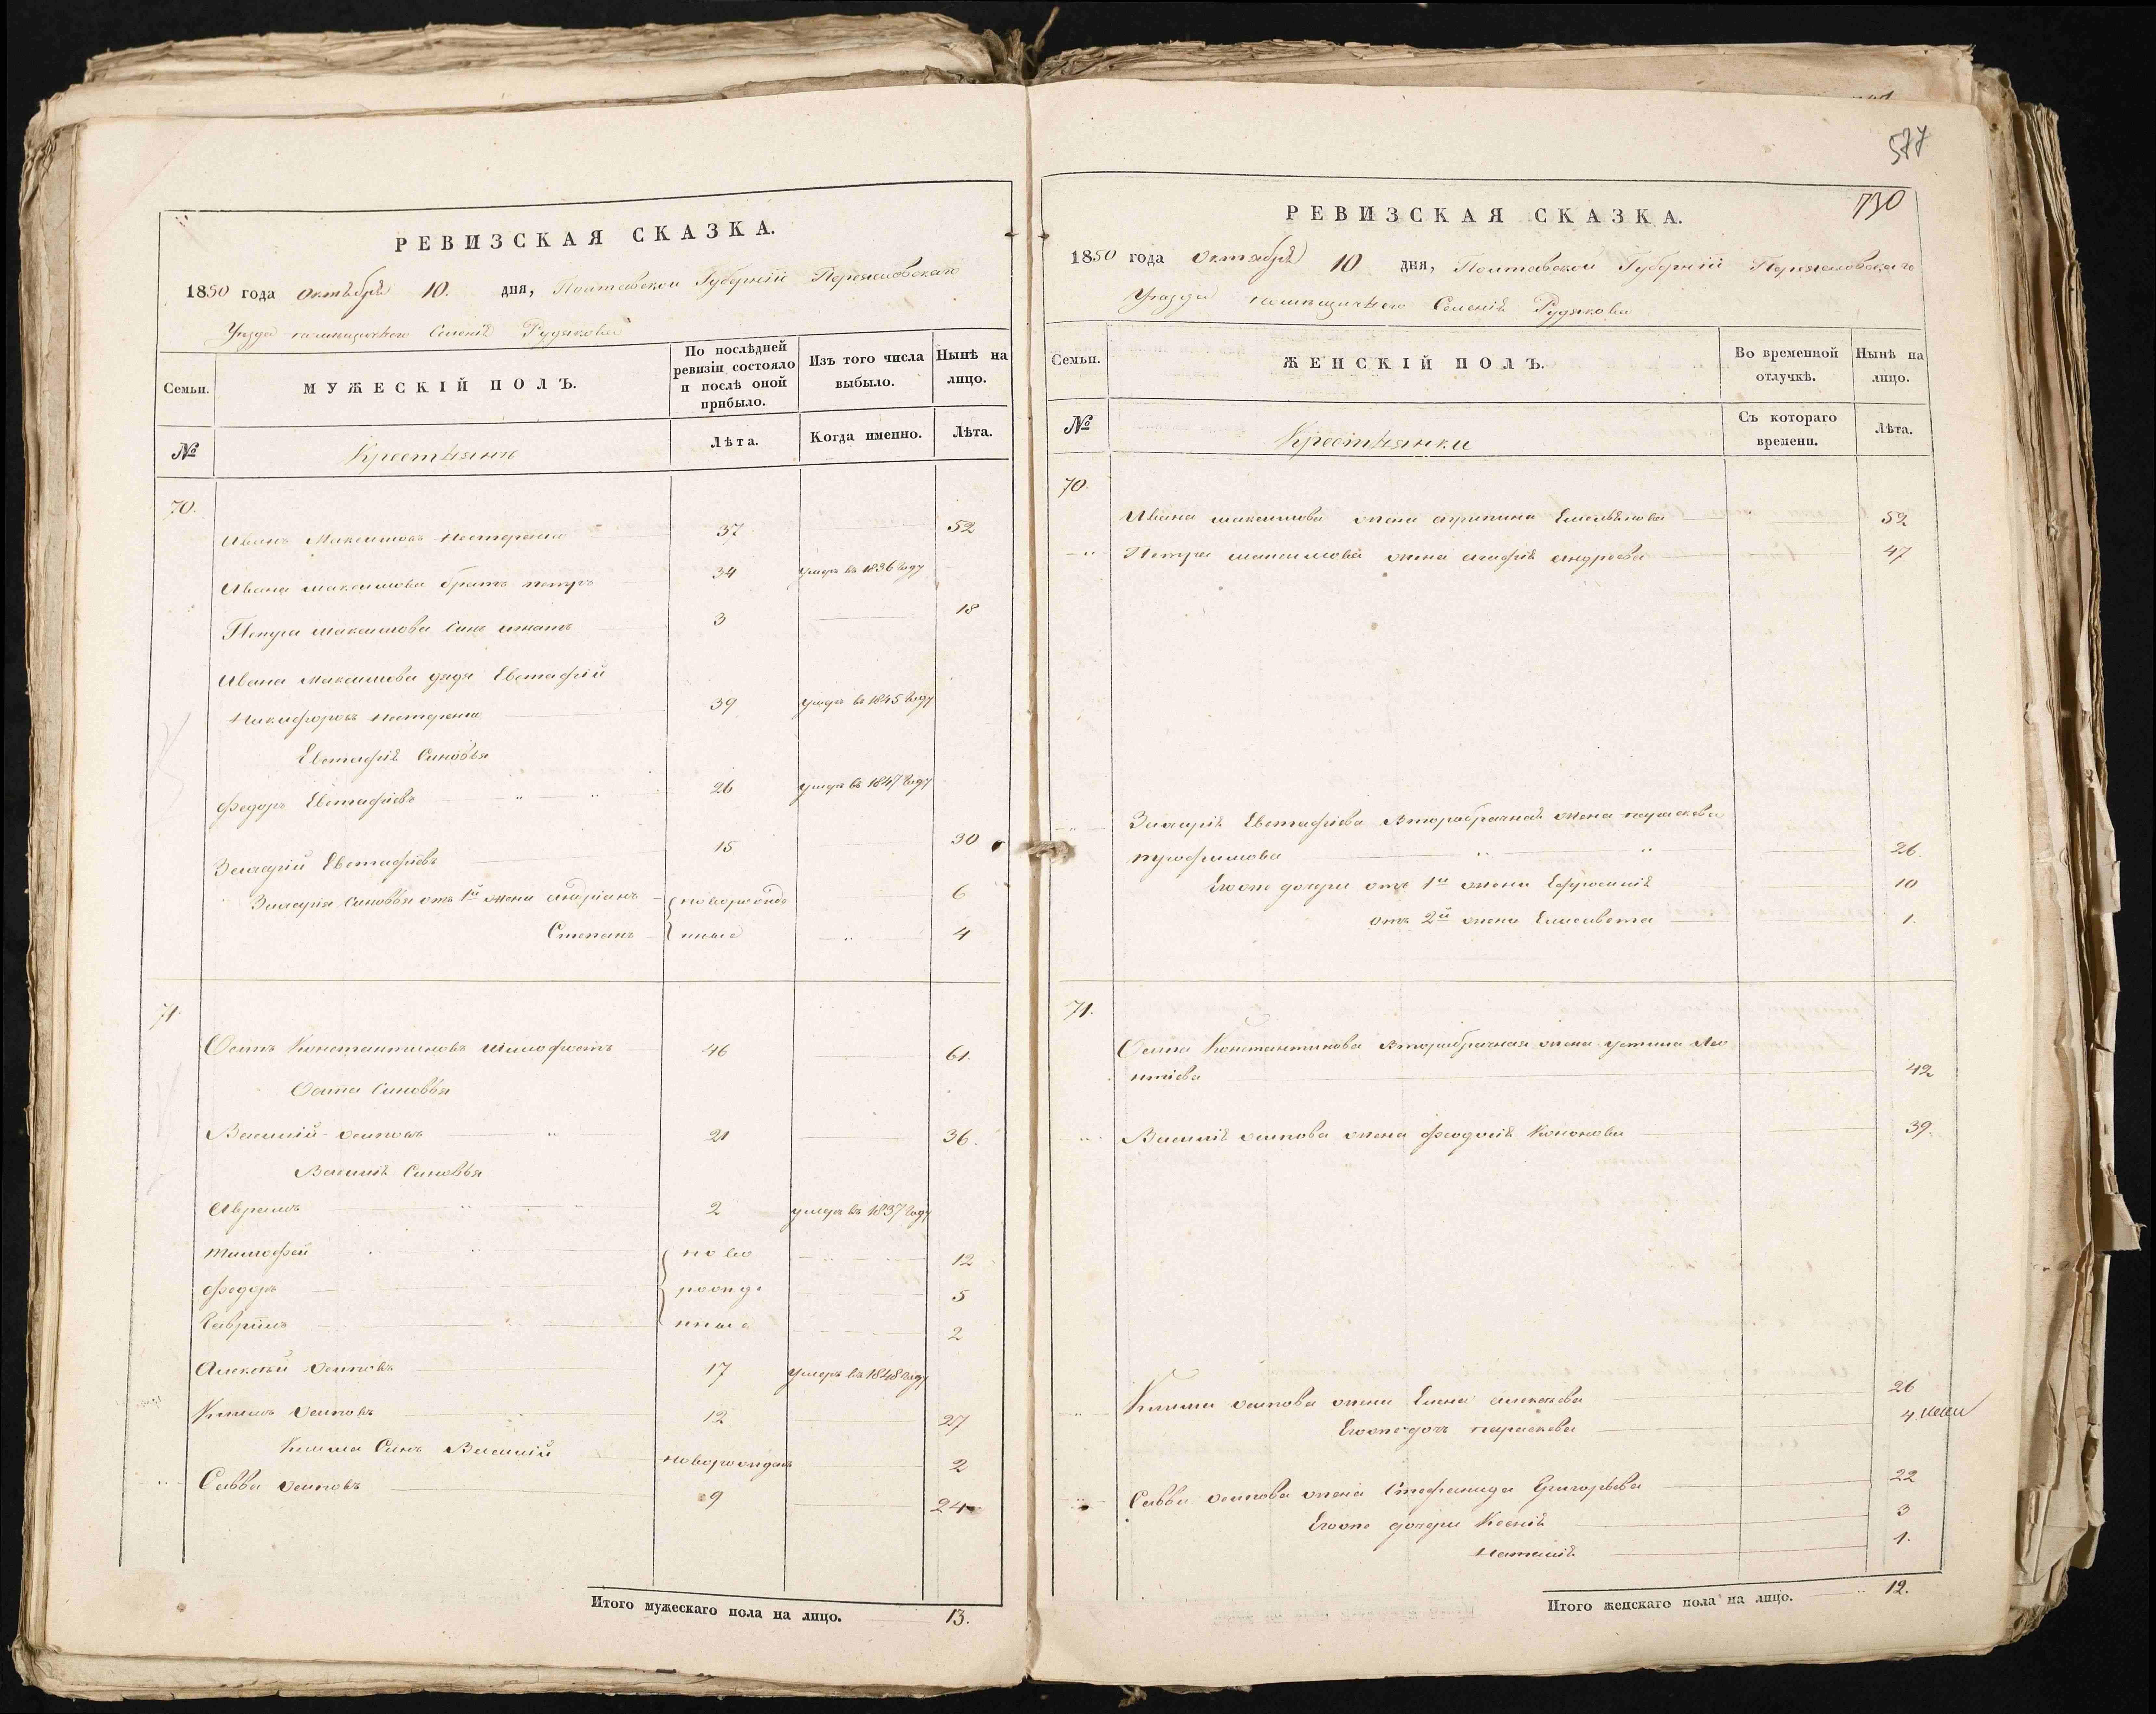 РЕВИЗСКАЯ СКАЗКА.
1850 года Октября 10. дня, Полтавской Губерніи Переяславскаго
Уезда помещичьего Селенія Рудякова
Семьи.
МУЖЕСКІЙ ПОЛЪ.
По послѣдней ревизіи состояло и послѣ оной прибыло.
Изъ того числа выбыло.
Нынѣ на лицо.
№
Крестьяне
Лѣта.
Когда именно.
Лѣта.
70.
Иванъ Максимовъ Нестеренко 37 52
Ивана максимова братъ петръ 34 умеръ въ 1836 году
Петра максимова сынъ игнатъ 3 18
Ивана максимова дядя Евстафій
Никифоровъ Нестеренко 39 умеръ въ 1845 году
Евстафія Сыновья
Федоръ Евстафіевъ 26 умеръ въ 1847 году
Захарій Евстафіевъ 15 30
Захарія сыновья отъ 1й жены андріанъ новорожде 6
Степанъ нные 4
71
Осипъ Константиновъ 46 61.
Осипа сыновья
Василій осиповъ 21 36.
Василія Сыновья
Аврамъ 2 умеръ въ 1837 году
тимофей ново 12
Федоръ рожде 5
Гавріилъ нные 2
Алексѣй осиповъ 17 умеръ въ 1848 году
Климъ осиповъ 12 27
Клима Сынъ Василій новорожденъ 2
Савва осиповъ 9 24
Итого мужескаго пола на лицо. 13.
577
730
РЕВИЗСКАЯ СКАЗКА.
1850 года Октября 10 дня, Полтавской Губерніи Переяславскаго
Уезда помещичьего Селенія Рудякова
Семьи.
ЖЕНСКІЙ ПОЛЪ.
Во временной отлучкѣ.
Нынѣ на лицо.
№
Крестьянки
Съ котораго времени.
Лѣта.
70.
Ивана максимова жена агрипина Емельянова 52
Петра максимова жена агафія андреева 47
Захарія Евстафіева второбрачная жена параскева
трофимова 26.
Егоже дочери отъ 1й жены Ефросинія 10
отъ 2й жены Елисавета 1.
71.
Осипа Константинова второбрачная жена устина Лео
нтіева 42
Василія осипова жена феодосія Кононова 39.
Клима осипова жена Елена алексѣева 26
Егоже дочь параскева 4
Саввы осипова жена Стефанида Григорьева 22
Егоже дочери Ксенія 3
Наталія 1.
Итого женскаго пола на лицо. 12.